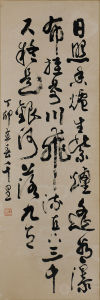 日照香爐生紫煙遙看瀑
布挂前川飛流直下三千
尺疑是銀河落九天
丁卯